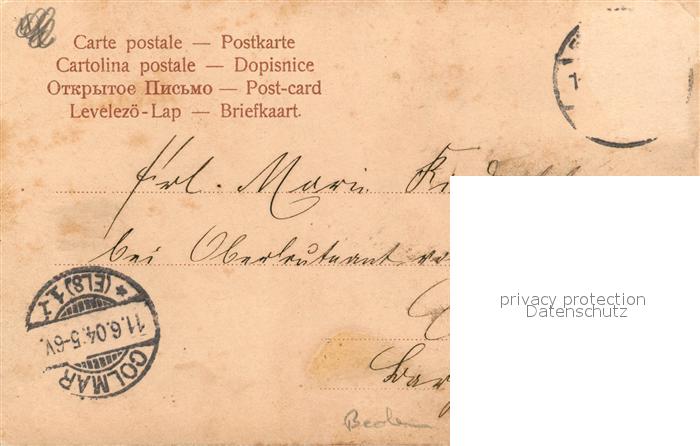 Carte postale — Postkarte
Cartolina postale — Dopisnice
Открытое Письмо — Post-card
Levelező-Lap — Briefkaart.
Frl. Marie
bei Oberleutnant
COLMAR
* (ELS) 1. 1
11.6.04. 5-6V.
privacy protection
Datenschutz